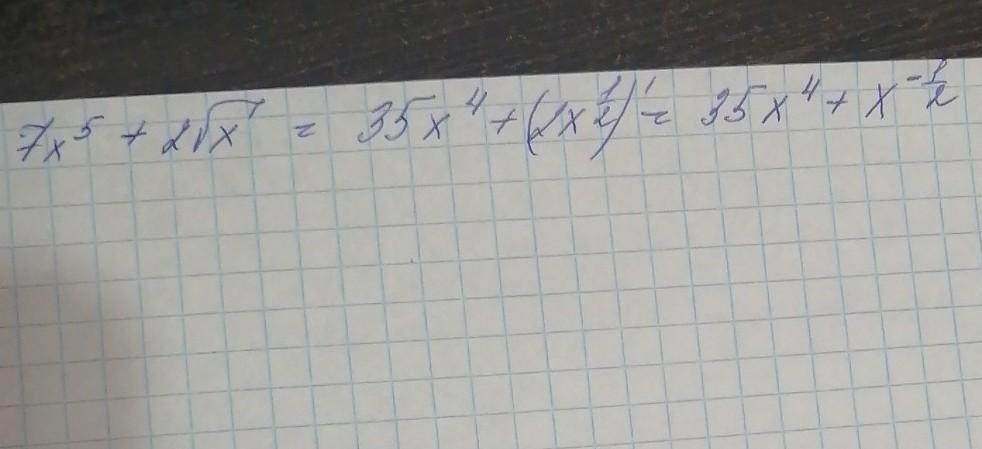 7x⁵ + 2√x = 35x⁴ + (2x^½)' = 35x⁴ + x^-½